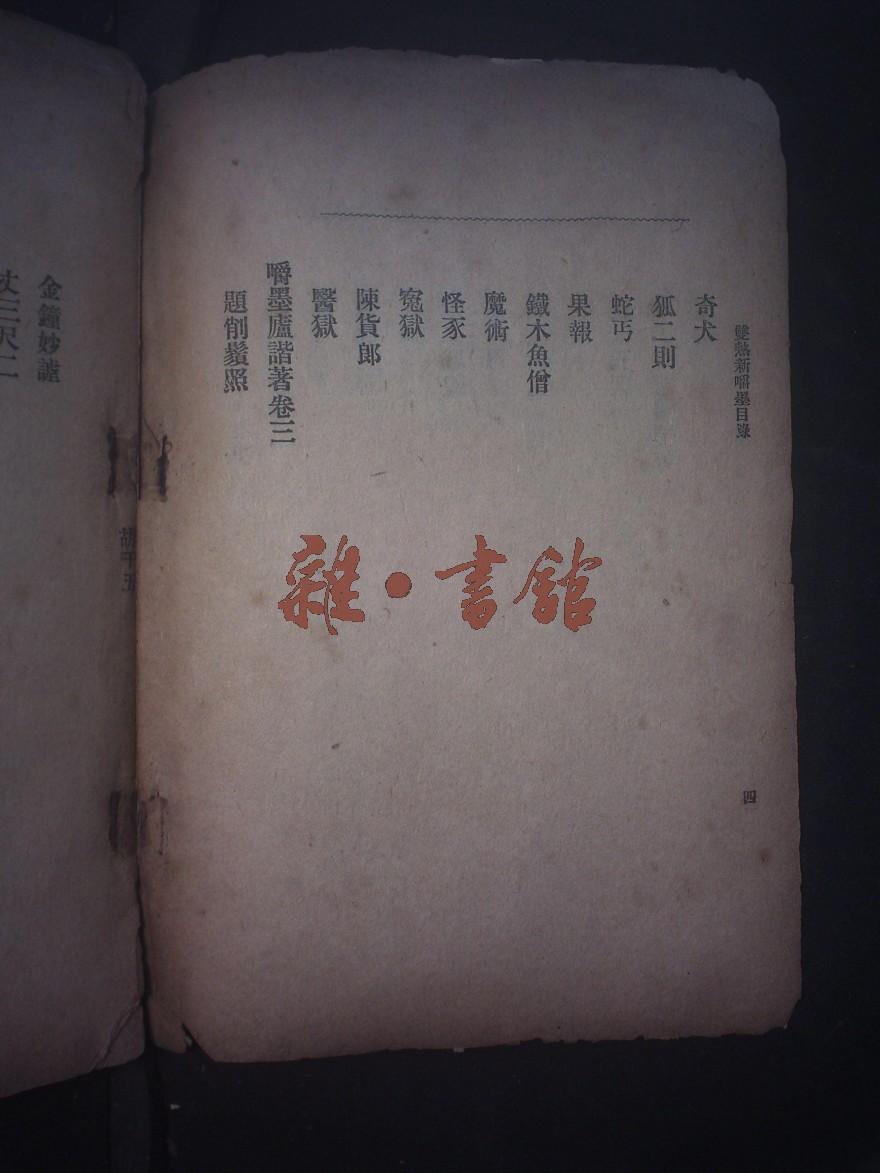 雙熱新嚼墨目錄
奇犬
狐二則
蛇丐
果報
鐵木魚僧
魔術
怪豕
寃獄
陳貨郎
醫獄
嚼墨廬諧著卷三
題削鬚照
四
雜·書館
金鐘妙謔